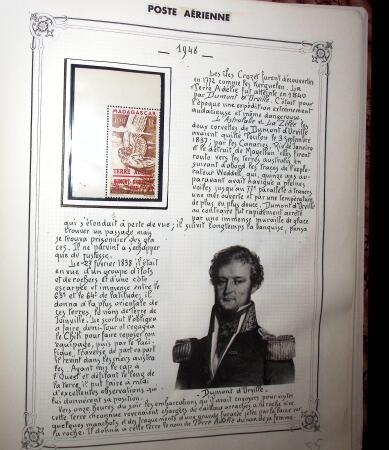 POSTE AÉRIENNE
- 1948 -
MADAGASCAR
TERRE ADÉLIE
DUMONT D'URVILLE
Les îles Crozet furent découvertes
en 1772 comme les Kerguelen. La
Terre Adélie fut atteinte en 1840
par Dumont d'Urville. C'était pour
l'époque une expédition extrêmement
audacieuse et même dangereuse.
L'Astrolabe et La Zélée les
deux corvettes de Dumont d'Urville
avaient quitté Toulon le 7 septembre
1837; par les Canaries, Rio de Janeiro
et le détroit de Magellan, elles firent
route vers les terres australes en
suivant d'abord les traces de l'explo-
rateur Weddell qui, quinze ans au-
paravant avait navigué à pleines
voiles jusqu'au parallèle à travers
une mer ouverte et par une température
de plus en plus douce. Dumont d'Urville
au contraire fut rapidement arrêté
par une immense muraille de glace
qui s'étendait à perte de vue; il suivit longtemps la banquise, pensa
trouver un passage mais
se trouva prisonnier des gla-
ces. Il ne parvint à s'échapper
que de justesse.
Le 27 février 1838 il était
en vue d'un groupe d'îlots
et de rochers et d'une côte
escarpée et immense entre le
63° et le 64° de latitudes; il
donna à la plus orientale de
ces terres, le nom de Terre de
Joinville. Le scorbut l'obligea
à faire demi-tour et regagna
le Chili pour faire reposer son
équipage, puis par le Paci-
fique, traversé de part en part
il revint dans les mers austra-
les. Ayant mis le cap à
l'Ouest et défilant le long de
la terre, il put faire à midi
d'excellentes observations qui
lui donnèrent sa position.
- Dumont d'Urville. -
Vers onze heures du soir les embarcations qu'il avait envoyées pour visiter
cette terre inconnue revenaient chargées de cailloux arrachés à la roche vive
quelques manchots et des fragments d'une grande jetés par la face sur
la roche. Il donna à cette terre le nom de Terre Adélie du nom de sa femme.